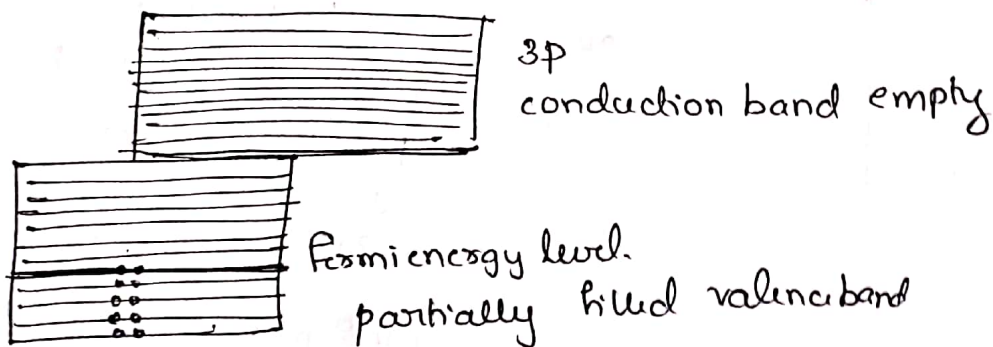 3p
conduction band empty
Fermienergy level.
partially filled valence band